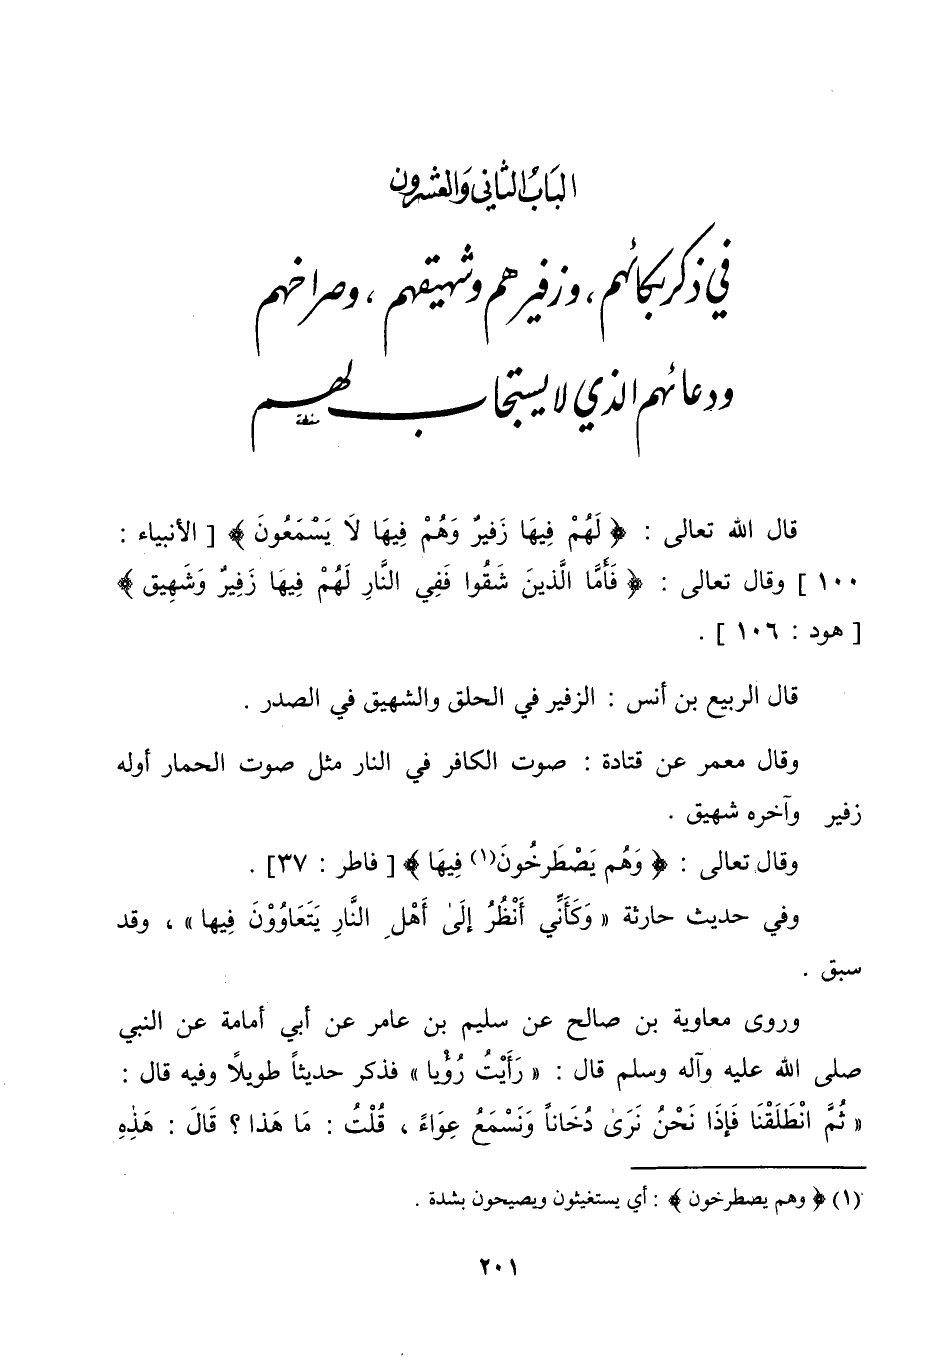 الباب الثاني والعشرون
في ذكر بكائهم ، وزفيرهم وشهيقهم ، وصراخهم
ودعائهم الذي لا يستجاب لهم
قال الله تعالى : ﴿ لَهُمْ فِيهَا زَفِيرٌ وَهُمْ فِيهَا لَا يَسْمَعُونَ ﴾ [ الأنبياء :
١٠٠ ] وقال تعالى : ﴿ فَأَمَّا الَّذِينَ شَقُوا فَفِي النَّارِ لَهُمْ فِيهَا زَفِيرٌ وَشَهِيق ﴾
[ هود : ١٠٦ ] .
قال الربيع بن أنس : الزفير في الحلق والشهيق في الصدر .
وقال معمر عن قتادة : صوت الكافر في النار مثل صوت الحمار أوله
زفير وآخره شهيق .
وقال تعالى : ﴿ وَهُم يَصْطَرِخُونَ(١) فِيهَا ﴾ [ فاطر : ٣٧] .
وفي حديث حارثة « وَكَأَنِّي أَنْظُرُ إِلَىٰ أَهْلِ النَّارِ يَتَعَاوُوْنَ فِيها » ، وقد
سبق .
وروى معاوية بن صالح عن سليم بن عامر عن أبي أمامة عن النبي
صلى الله عليه وآله وسلم قال : « رَأَيْتُ رُؤْيا » فذكر حديثاً طويلًا وفيه قال :
« ثُمَّ انْطَلَقْنَا فَإِذَا نَحْنُ نَرَىٰ دُخَاناً وَنَسْمَعُ عِوَاءً ، قُلْتُ : مَا هَذا ؟ قَالَ : هَذِهِ
(١) ﴿ وهم يصطرخون ﴾ : أي يستغيثون ويصيحون بشدة .
٢٠١